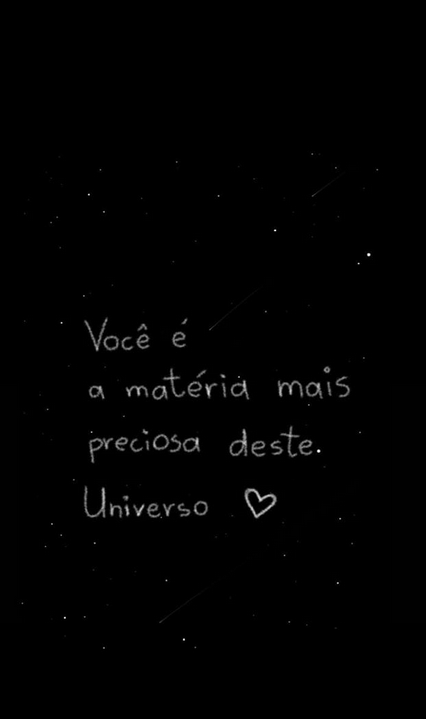 Você é
a matéria mais
preciosa deste.
Universo ♡